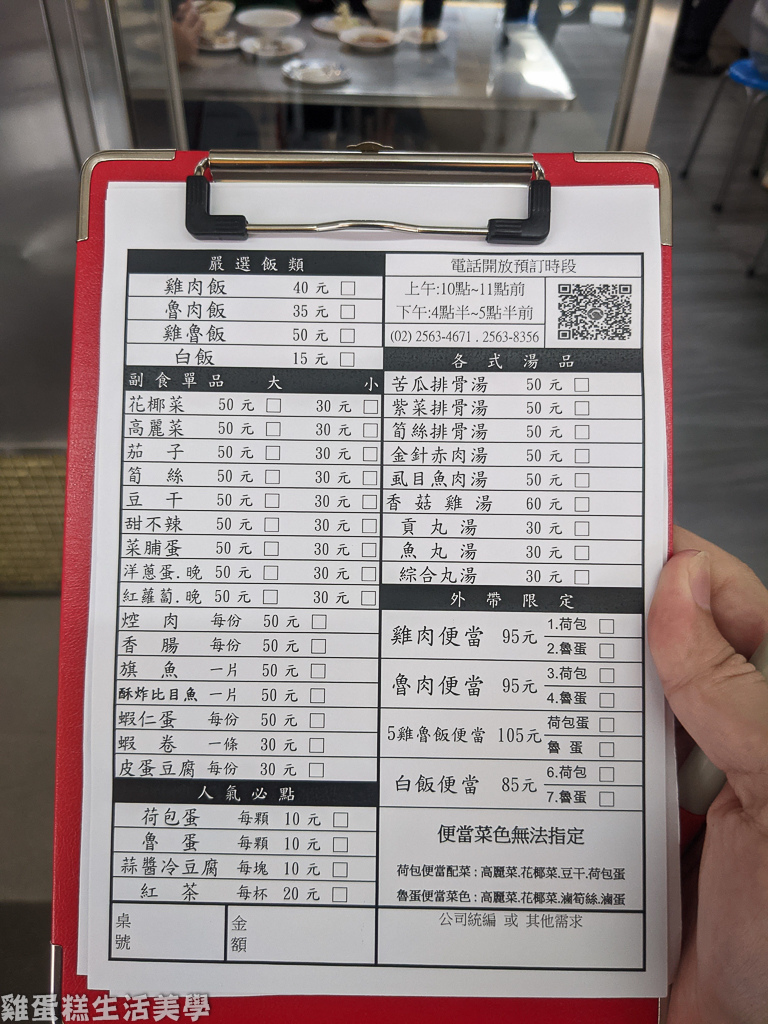 嚴選飯類
雞肉飯 40元 □
魯肉飯 35元 □
雞魯飯 50元 □
白飯 15元 □
副食單品 大 小
花椰菜 50元 □ 30元 □
高麗菜 50元 □ 30元 □
茄子 50元 □ 30元 □
筍絲 50元 □ 30元 □
豆干 50元 □ 30元 □
甜不辣 50元 □ 30元 □
菜脯蛋 50元 □ 30元 □
洋蔥蛋.晚 50元 □ 30元 □
紅蘿蔔.晚 50元 □ 30元 □
焢肉 每份 50元 □
香腸 每份 50元 □
旗魚 一片 50元 □
酥炸比目魚 一片 50元 □
蝦仁蛋 每份 50元 □
蝦卷 一條 30元 □
皮蛋豆腐 每份 30元 □
人氣必點
荷包蛋 每顆 10元 □
魯蛋 每顆 10元 □
蒜醬冷豆腐 每塊 10元 □
紅茶 每杯 20元 □
桌號
金額
電話開放預訂時段
上午:10點~11點前
下午:4點半~5點半前
(02) 2563-4671 . 2563-8356
各式湯品
苦瓜排骨湯 50元 □
紫菜排骨湯 50元 □
筍絲排骨湯 50元 □
金針赤肉湯 50元 □
虱目魚肉湯 50元 □
香菇雞湯 60元 □
貢丸湯 30元 □
魚丸湯 30元 □
綜合丸湯 30元 □
外帶限定
雞肉便當 95元
1.荷包 □
2.魯蛋 □
魯肉便當 95元
3.荷包 □
4.魯蛋 □
5雞魯飯便當 105元
荷包蛋 □
魯蛋 □
白飯便當 85元
6.荷包 □
7.魯蛋 □
便當菜色無法指定
荷包便當配菜：高麗菜.花椰菜.豆干.荷包蛋
魯蛋便當菜色：高麗菜.花椰菜.滷筍絲.滷蛋
公司統編 或 其他需求
雞蛋糕生活美學